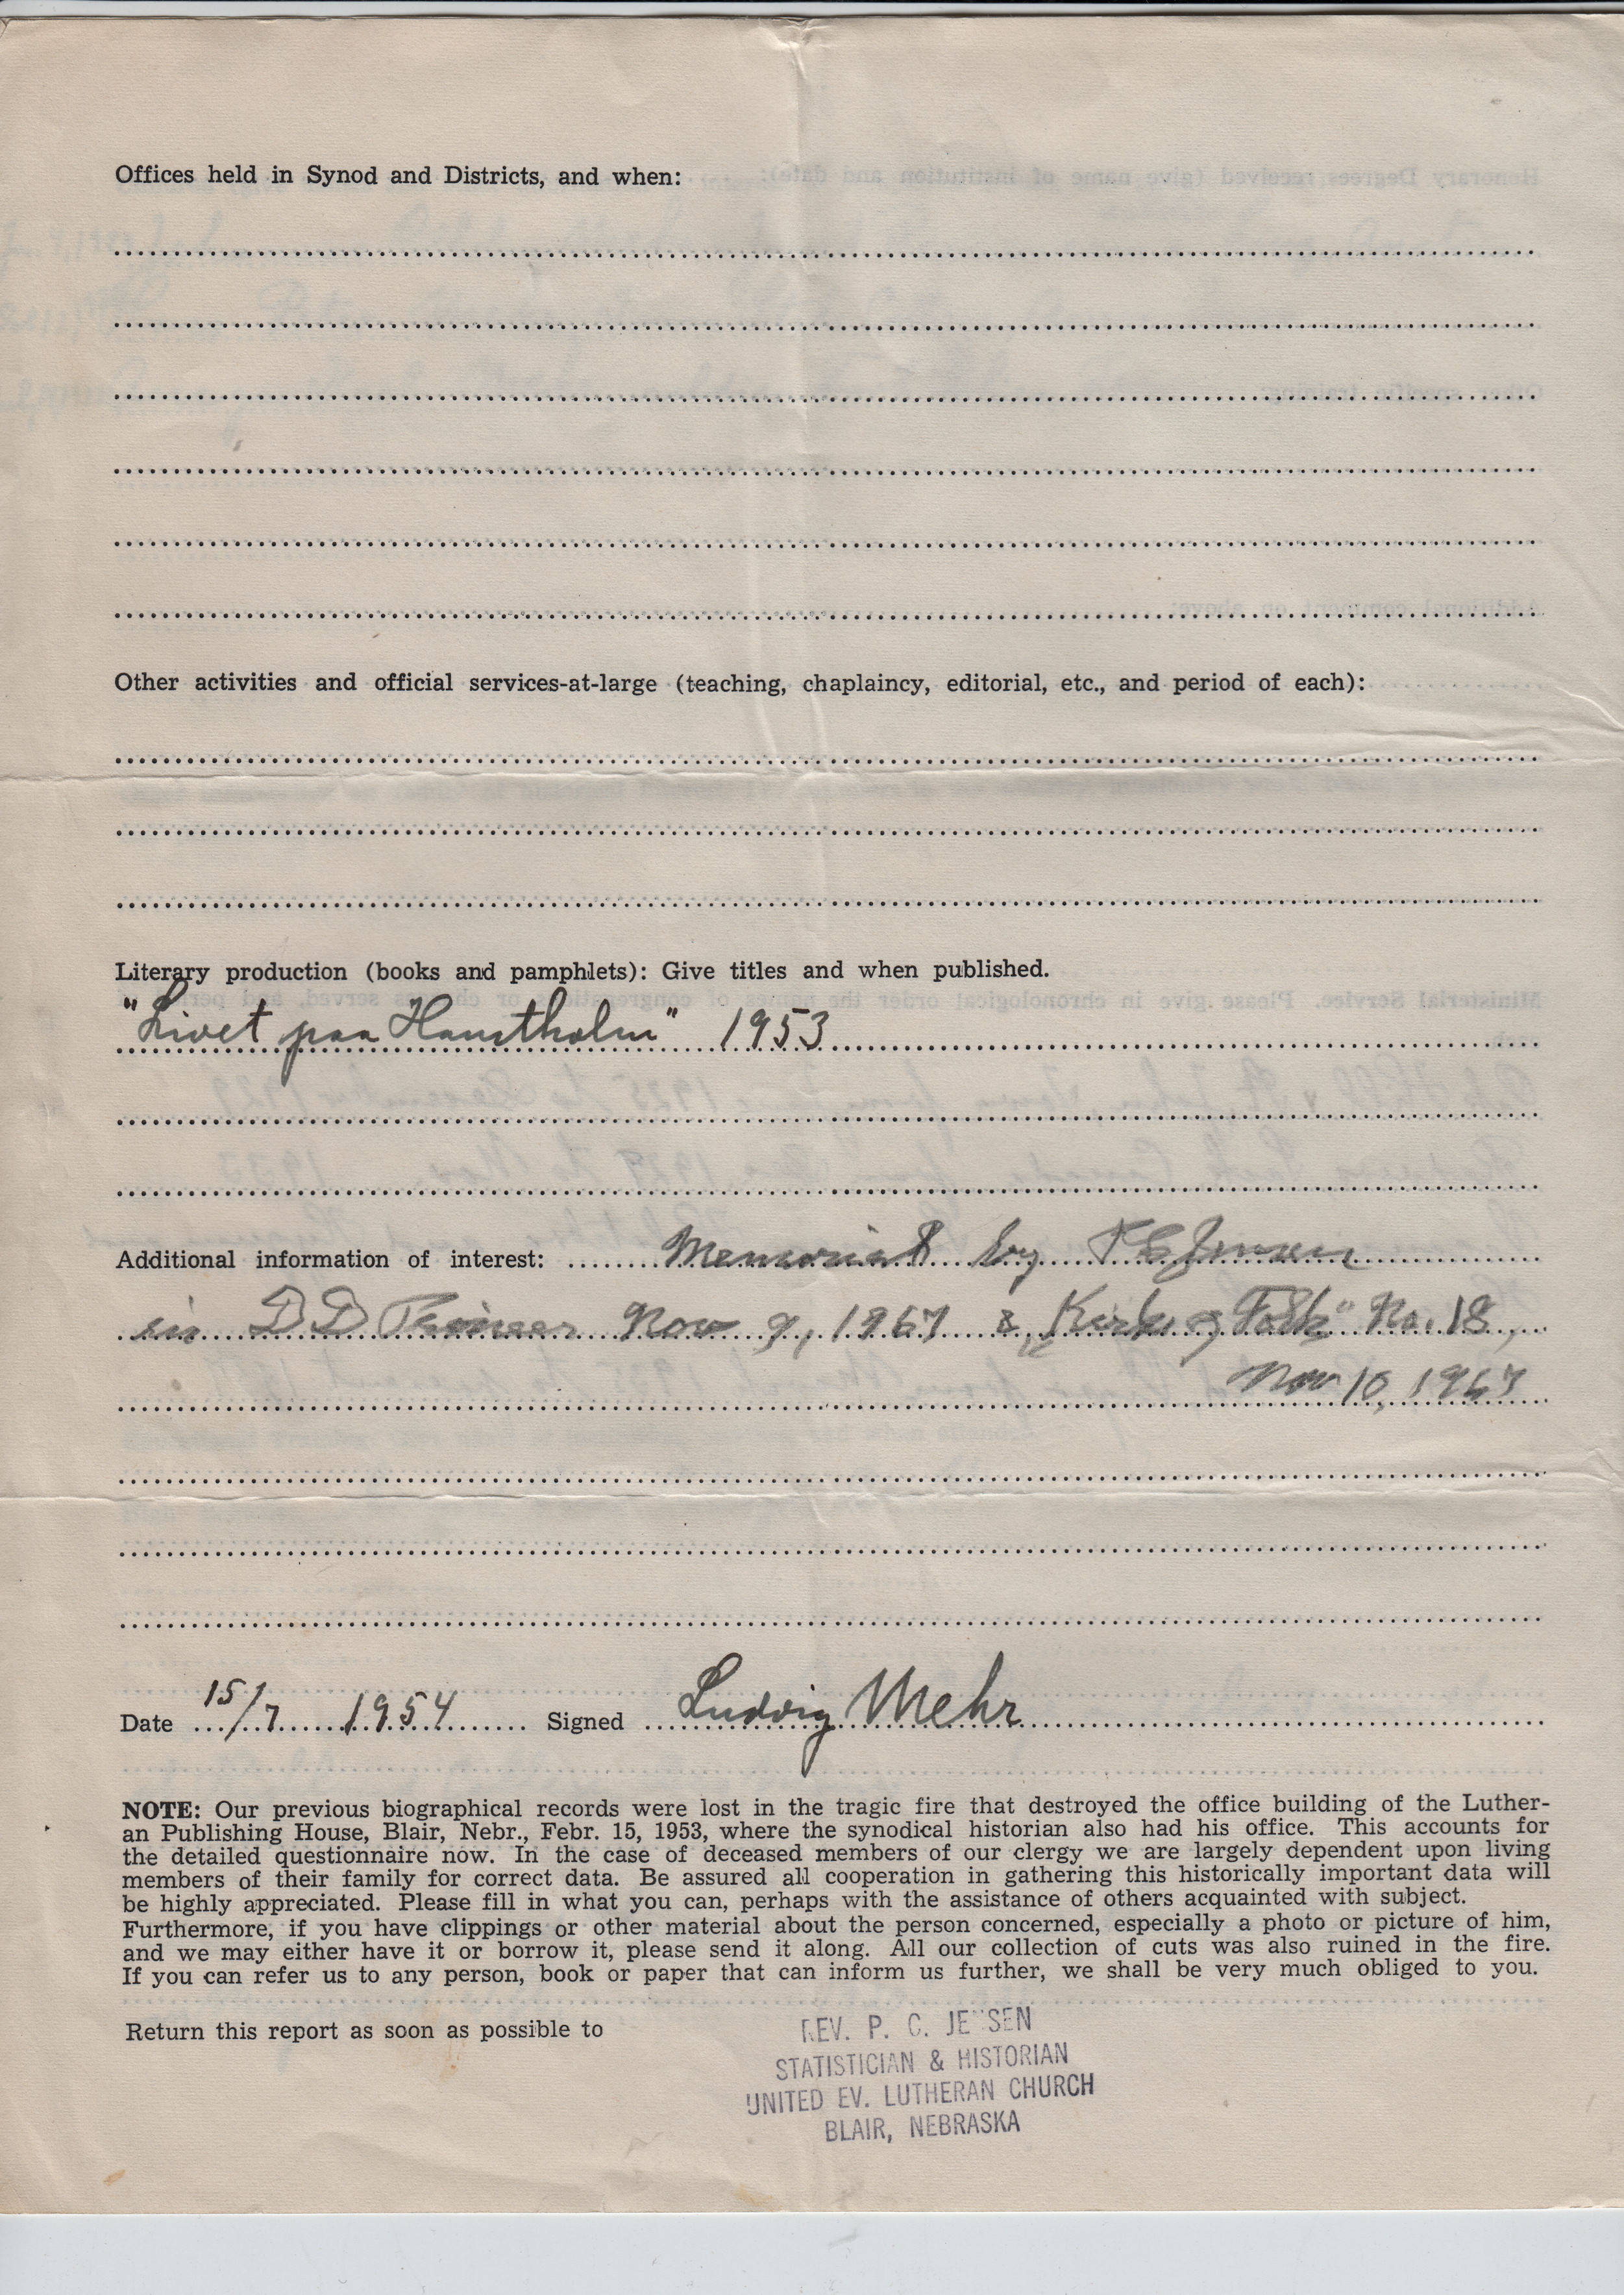 Offices held in Synod and Districts, and when:
Other activities and official services-at-large (teaching, chaplaincy, editorial, etc., and period of each):
Literary production (books and pamphlets): Give titles and when published.
"Livet paa Hanstholm" 1953
Additional information of interest: Memorial by
in D D Pioneer Nov 9, 1967 & "Kirke og Folk" No. 18,
Nov 10, 1967
Date 15/7 1954 Signed Ludvig Mehr
NOTE: Our previous biographical records were lost in the tragic fire that destroyed the office building of the Luther-
an Publishing House, Blair, Nebr., Febr. 15, 1953, where the synodical historian also had his office. This accounts for
the detailed questionnaire now. In the case of deceased members of our clergy we are largely dependent upon living
members of their family for correct data. Be assured all cooperation in gathering this historically important data will
be highly appreciated. Please fill in what you can, perhaps with the assistance of others acquainted with subject.
Furthermore, if you have clippings or other material about the person concerned, especially a photo or picture of him,
and we may either have it or borrow it, please send it along. All our collection of cuts was also ruined in the fire.
If you can refer us to any person, book or paper that can inform us further, we shall be very much obliged to you.
Return this report as soon as possible to
REV. P. C. JENSEN
STATISTICIAN & HISTORIAN
UNITED EV. LUTHERAN CHURCH
BLAIR, NEBRASKA